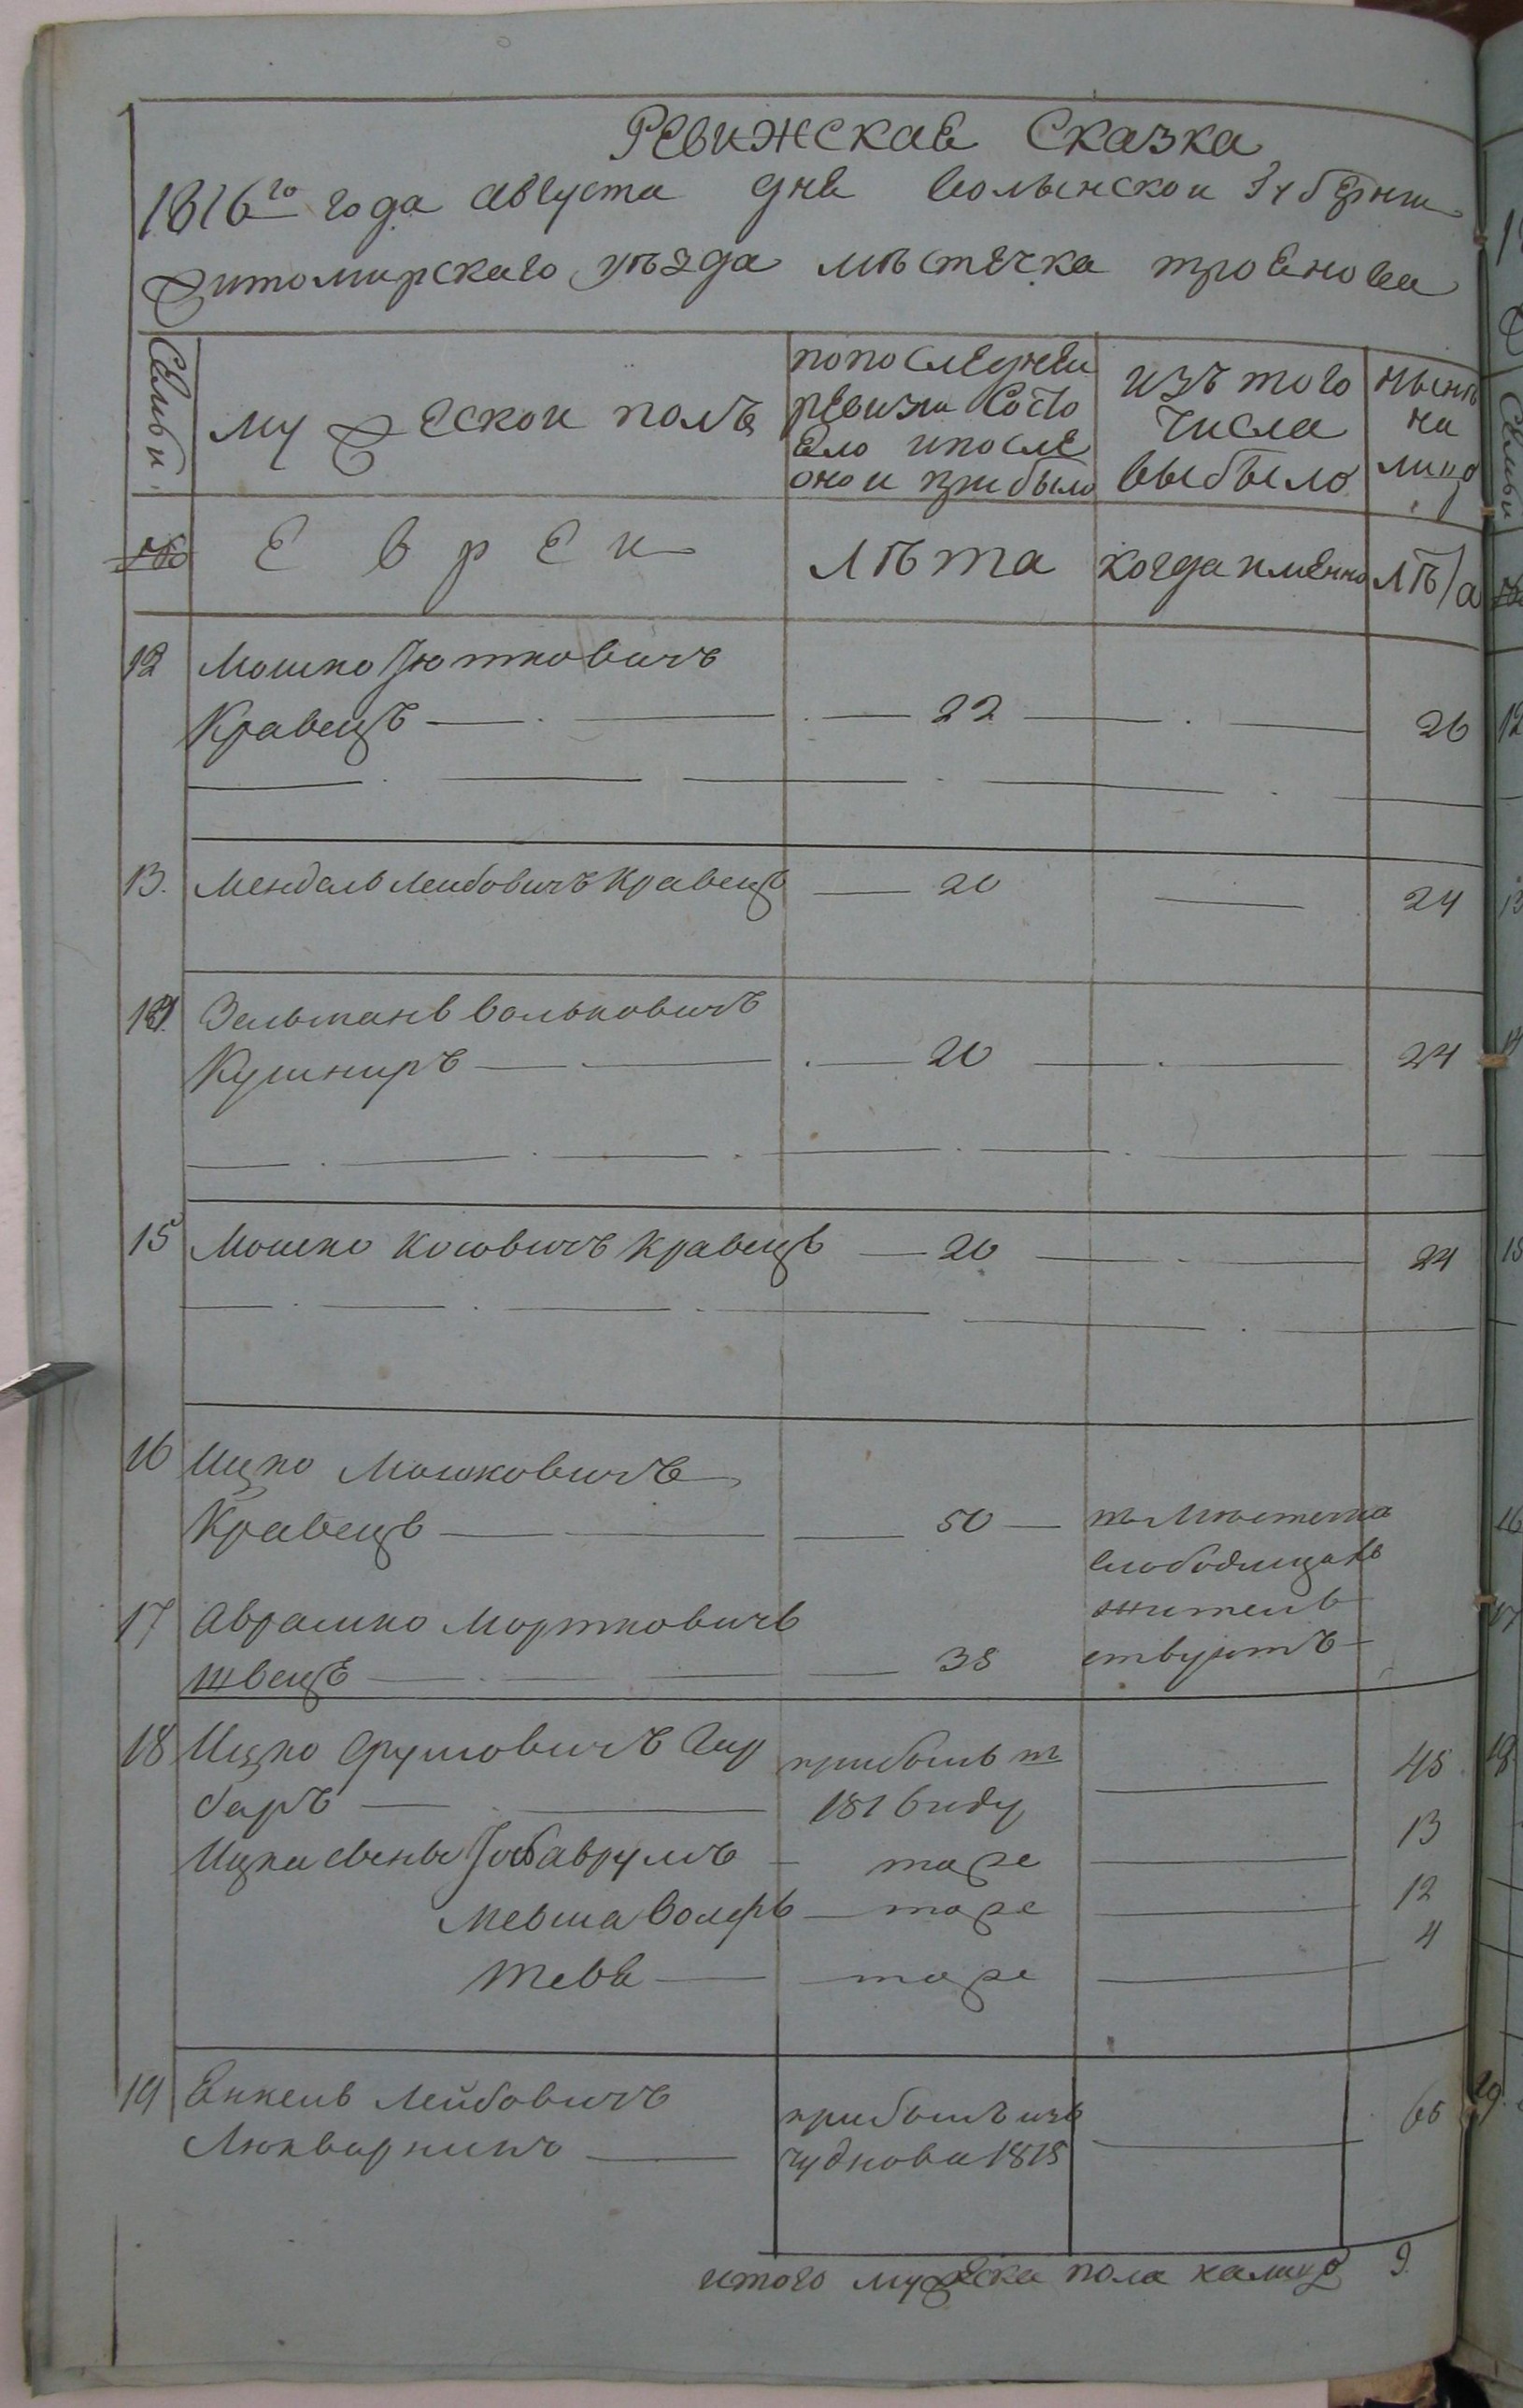 Ревижская Сказка
1816го года августа дня волынской губернии
Житомирскаго уезда мѣстечка троянова
Семьи
мужескои полъ
попоследнеи
ревизии Состо
яло ипосле
онои прибыло
изъ того
числа
выбыло
нынѣ
на
лицо
№
Евреи
лѣта
когда имянно
лѣта
12 Мошко Юткович
Кравецъ 22 26
13. Мендель Лейбовичъ Кравецъ 20 24
14 Зельманъ Вольковичъ
Кушниръ 20 24
15 Мошко Кивовичъ Кравецъ 20 24
16 Ицко Мошковичъ
Кравецъ 50
17 Аврамко Мортковичъ
швецъ 38
жителъ
ствуютъ
18 Ицко Сруловичъ Гар
баръ
прибылъ
1816 году
45
Ицка сынъ аврумъ тоже 13
тоже 12
Тевя тоже 4
19 Енкель Лейбовичъ
прибылъ изъ
чуднова 1815
65
итого мужеска пола налицо 9.